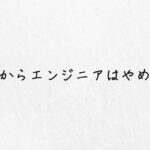 からエンジニアはやめ